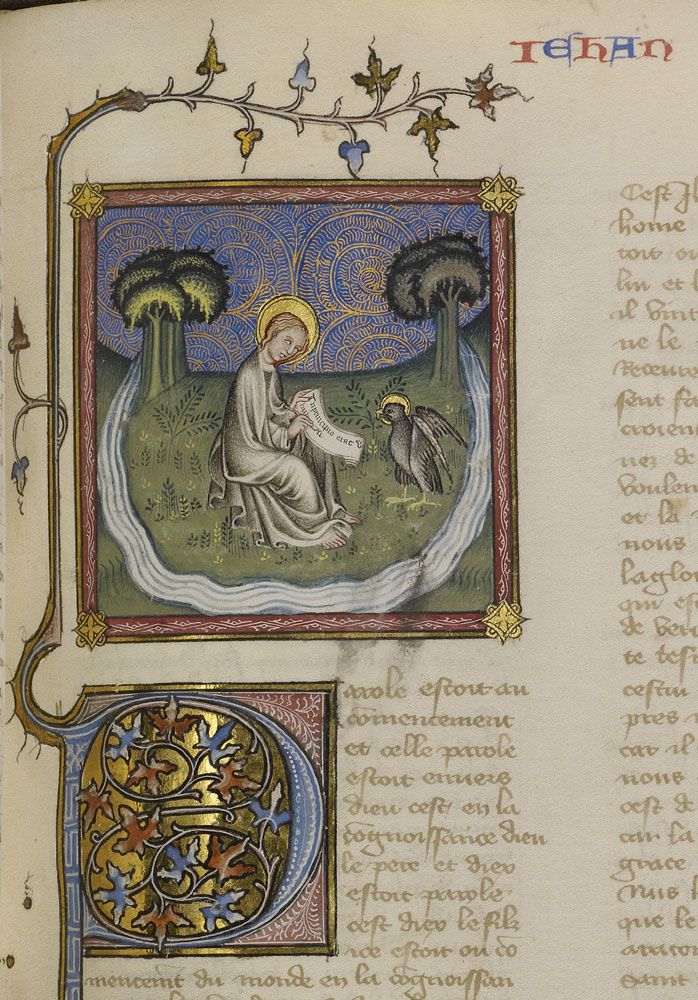 IEHAN
In principio erat v
Parole estoit au
comencement
et celle parole
estoit envers
dieu cest en la
cognoissance dieu
le pere et dieu
estoit parole
cest dieu le filz
ice estoit ou co
mencement du monde en la cognoissan
Cest
home
toit ou
lin et
il vint
ne le
sent
croient
nez de
voulen
et la
nous
la glo
qui es
de veri
te
cestui
pres
car il
nous
cest de
car la
grace
Nus
que le
saint